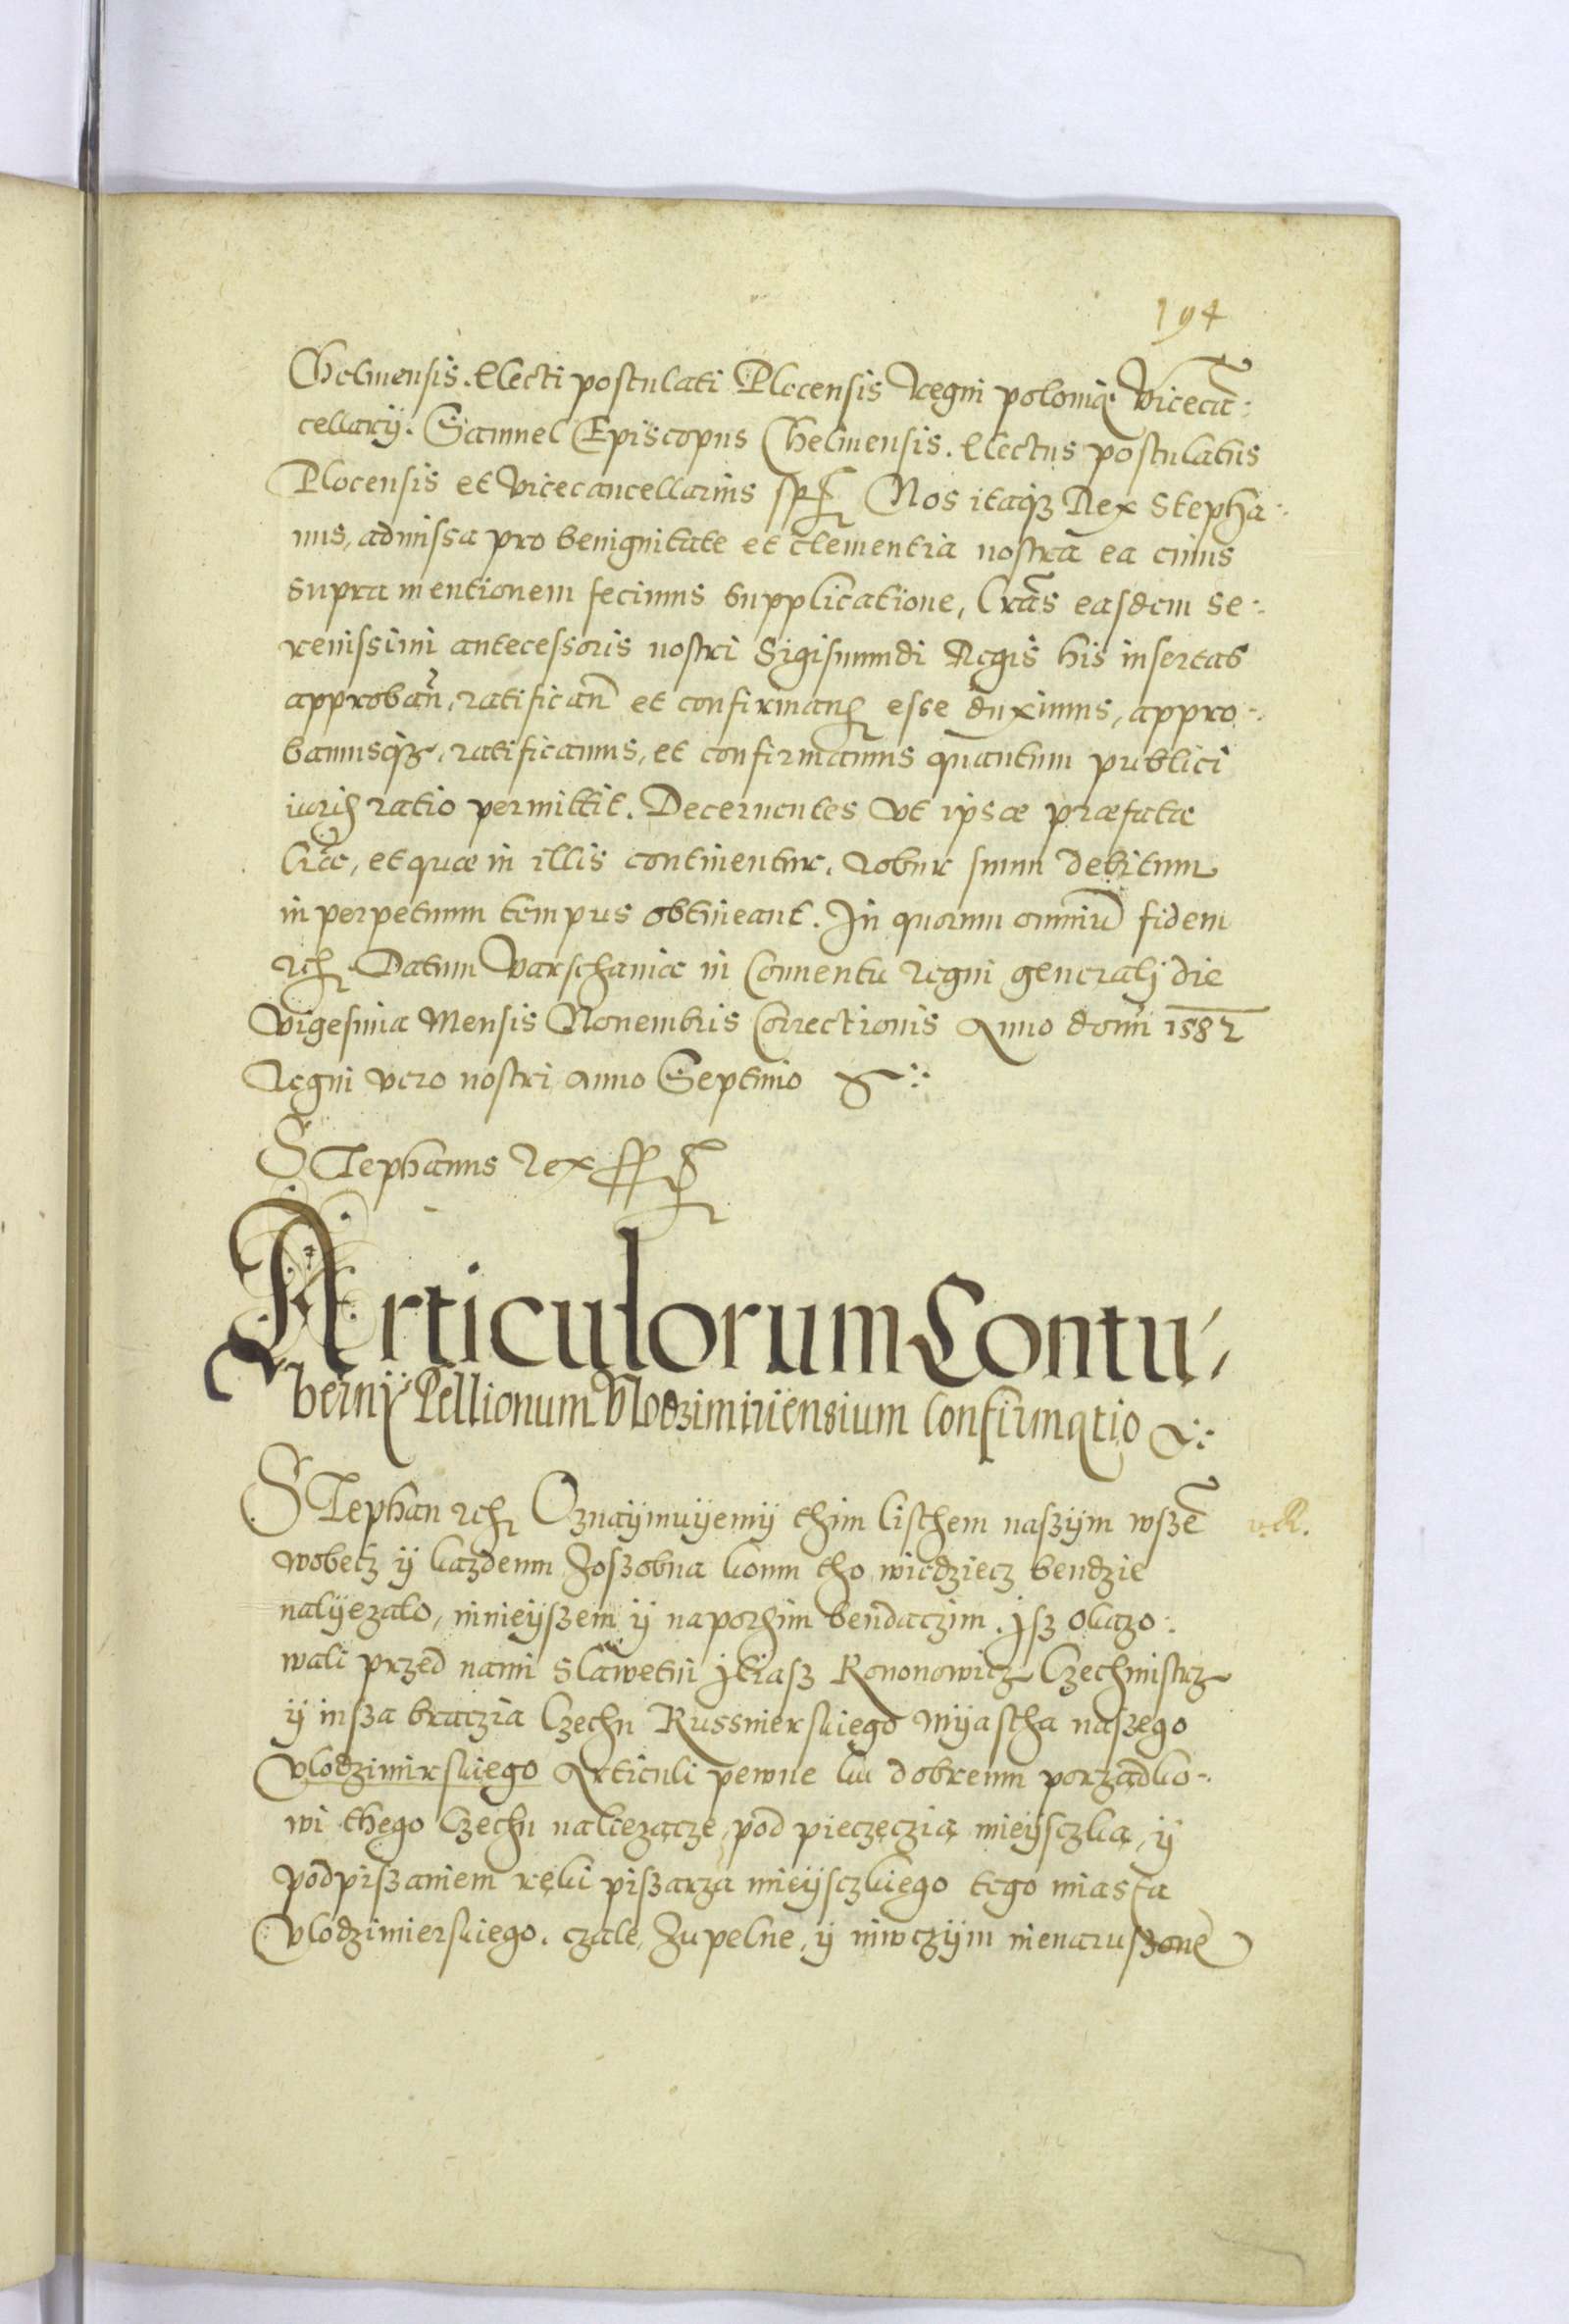 194
Chelmensis. Electi postulati Plocensis Regni polonię Vicecā:
cellarij. Samuel Episcopus Chelmensis. Electus postulatus
Plocensis et Vicecancellarius Nos itaqꝫ Rex Stepha:
nus, admissa pro benignitate et clementia nostra ea cuius
supra mentionem fecimus supplicatione, Lrās easdem se:
renissimi antecessoris nostri Sigismundi Regis his insertas
approbań, ratificań et confirmań esse duximus, appro:
bamusqꝫ, ratificamus, et confirmamus quantum publici
iuris ratio permittit. Decernentes Vt ipsæ præfatæ
lræ, et quæ in illis continentur. robur suum debitum
in perpetuum tempus obtineant. In quorum omniū fidem
etc. Datum Varschauiæ in Conuentu regni generalj die
Vigesima Mensis Nouembris Correctionis Anno domi 1582
Regni vero nostri anno Septimo
Stephanus Rex
Articulorum Contu,
bernij Pellionum Vlodzimiriensium Confirmatio
Stephan etc. Oznaijmuijemij thim listhem naszijm wszē
wobecz ij kazdemu Zoszobna komu tho wiedziecz bendzie
nalijezało, ninieijszem ij napothim bendaczim. Jsz okazo:
wali przed nami sławetni Jliasz Kononowicz Czechmistrz
ij insza braczia Czechu Kussnierskiego Mijastha naszego
Vlodzimirskiego Articuli pewne ku dobremu porządko:
wi thego Czechu należącze, pod pieczęczią mieijsczką, ij
podpiszaniem ręki piszarza mieijsczkiego tego miasta
Vlodzimierskiego. czałe, Zupełne, ij niwczijm nienaruszone